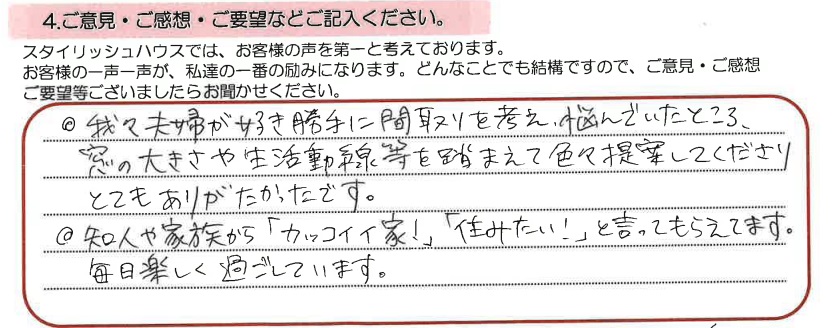 4.ご意見・ご感想・ご要望などご記入ください。
スタイリッシュハウスでは、お客様の声を第一と考えております。
お客様の一声一声が、私達の一番の励みになります。どんなことでも結構ですので、ご意見・ご感想
ご要望等ございましたらお聞かせください。
◎ 我々夫婦が好き勝手に間取りを考え、悩んでいたところ、
窓の大きさや生活動線等を踏まえて色々提案してくださり
とてもありがたかったです。
◎ 知人や家族から「カッコイイ家!」「住みたい!」と言ってもらえてます。
毎日楽しく過ごしています。